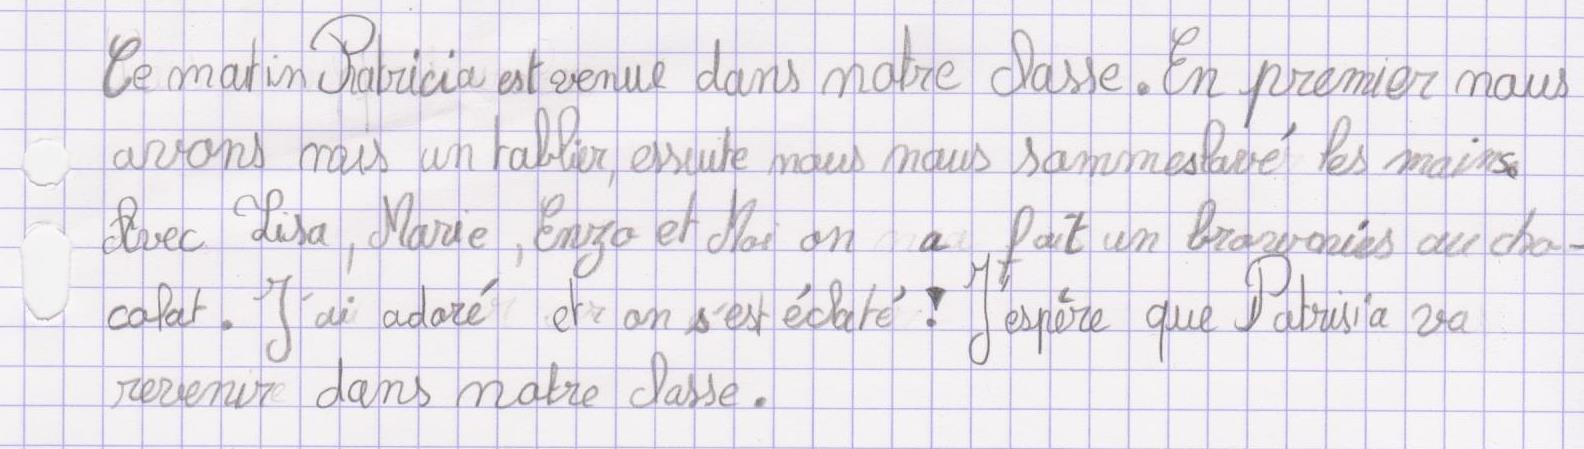 Ce matin Patricia est venue dans notre classe. En premier nous
avons mis un tablier, essuite nous nous sommes lavé les mains.
Avec Lisa, Marie, Enzo et Moi on a fait un browonies au cho-
colat. J'ai adoré et on s'est éclaté ! J'espère que Patrisia va
revenir dans notre classe.